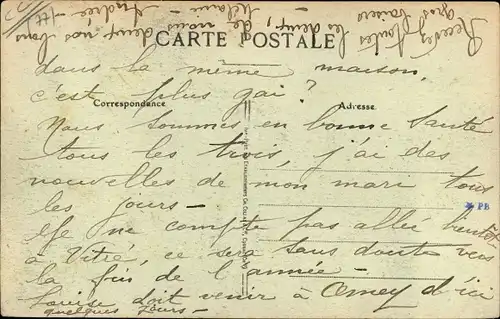 CARTE POSTALE
Correspondance
Adresse
dans la même maison,
c'est plus gai ?
Nous sommes en bonne santé
tous les trois, j'ai des
nouvelles de mon mari tous
les jours —
Je ne compte pas aller bientôt
à Vitré, ce sera sans doute vers
la fin de l'année —
Louise doit venir à d'ici
quelques jours —
Recevez toutes les deux, de nous deux, nos bons
gros baisers
Andrée —
PB